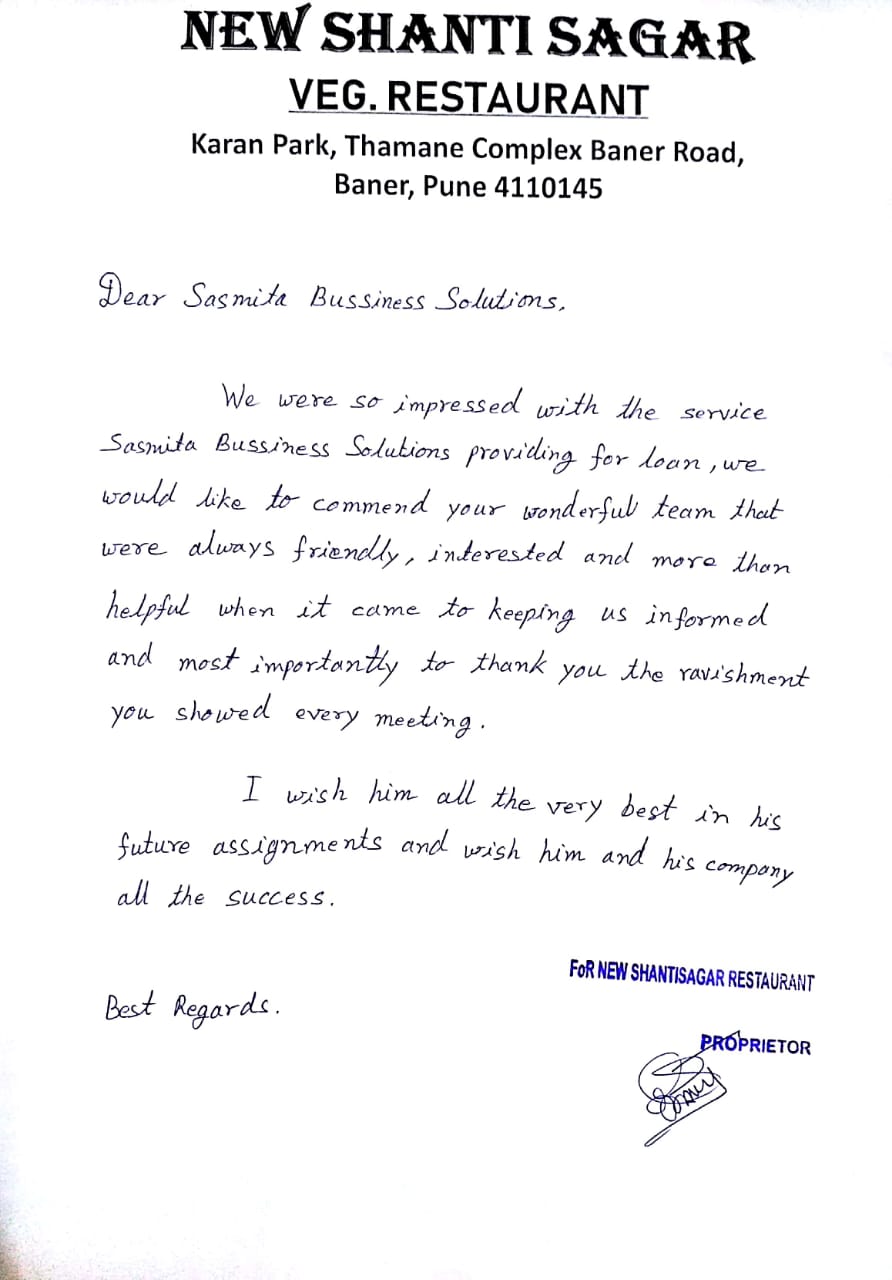 NEW SHANTI SAGAR
VEG. RESTAURANT
Karan Park, Thamane Complex Baner Road,
Baner, Pune 4110145
Dear Sasmita Bussiness Solutions,
We were so impressed with the service
Sasmita Bussiness Solutions providing for loan, we
would like to commend your wonderful team that
were always friendly, interested and more than
helpful when it came to keeping us informed
and most importantly to thank you the ravishment
you showed every meeting.
I wish him all the very best in his
future assignments and wish him and his company
all the success.
FoR NEW SHANTISAGAR RESTAURANT
Best Regards.
PROPRIETOR